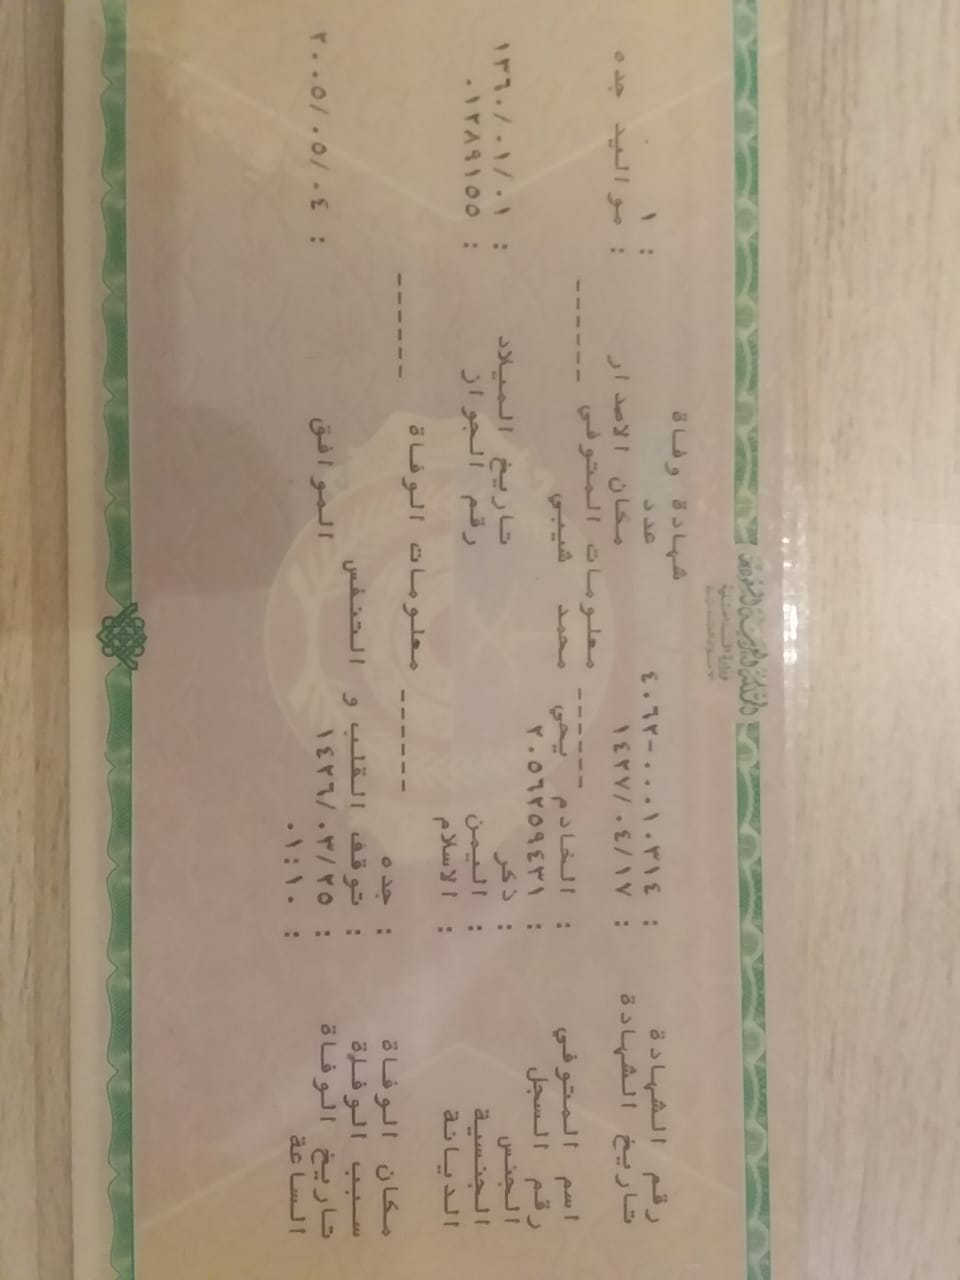 المملكة العربية السعودية
وزارة الداخلية
شهادة وفاة
رقم الشهادة : ٤٠٦٢-٠٠٠١٠٣١٤ عدد : ١
تاريخ الشهادة : ١٤٢٧/٠٤/١٧ مكان الاصدار : مواليد جده
------ معلومات المتوفي ------
اسم المتوفي : الخادم يحي محمد شيبي
رقم السجل : ٢٠٥٦٢٥٩٤٣١
الجنس : ذكر تاريخ الميلاد : ١٣٦٠/٠١/٠١
الجنسية : اليمن رقم الجواز : ٠١٢٨٩١٥٥
الديانة : الاسلام
------ معلومات الوفاة ------
مكان الوفاة : جده
سبب الوفاة : توقف القلب و التنفس
تاريخ الوفاة : ١٤٢٦/٠٣/٢٥ الموافق : ٢٠٠٥/٠٥/٠٤
الساعة : ٠١:١٠